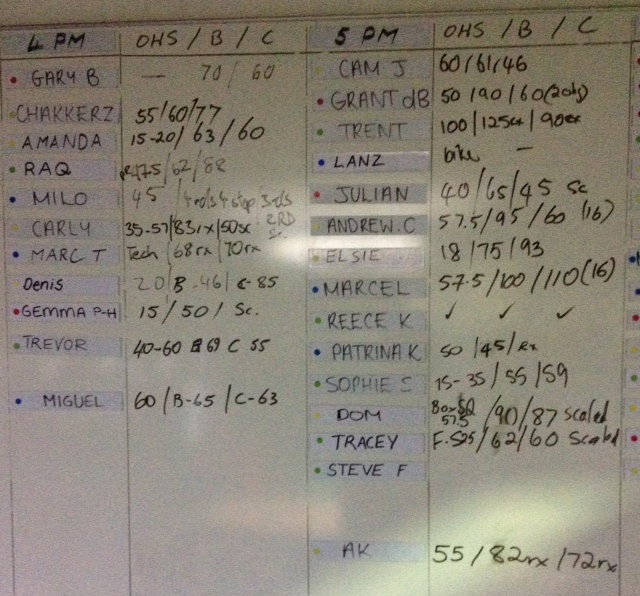 4 PM OHS / B / C
GARY B — 70 / 60
CHAKKERZ 55/60/77
AMANDA 15-20/63/60
RAQ 47.5/62/88
MILO 45
CARLY 35-57/83rx/50sc
MARC T Tech/68rx/70rx
Denis 20/B-46/C-85
GEMMA P-H 15/50/Sc.
TREVOR 40-60 B 69 C 55
MIGUEL 60/B-65/C-63
5 PM OHS / B / C
CAM J 60/61/46
GRANT dB 50/90/60
TRENT 100/125rx/90rx
LANZ bike —
JULIAN 40/65/45 sc
ANDREW.C 57.5/95/60 (16)
ELSIE 18/75/93
MARCEL 57.5/100/110(16)
REECE K ✓ ✓ ✓
PATRINA K 50/45/rx
SOPHIE S 15-35/55/59
DOM Box SQ 57.5/90/87 scaled
TRACEY F.S25/62/60 Scaled
STEVE F
AK 55/82rx/72rx